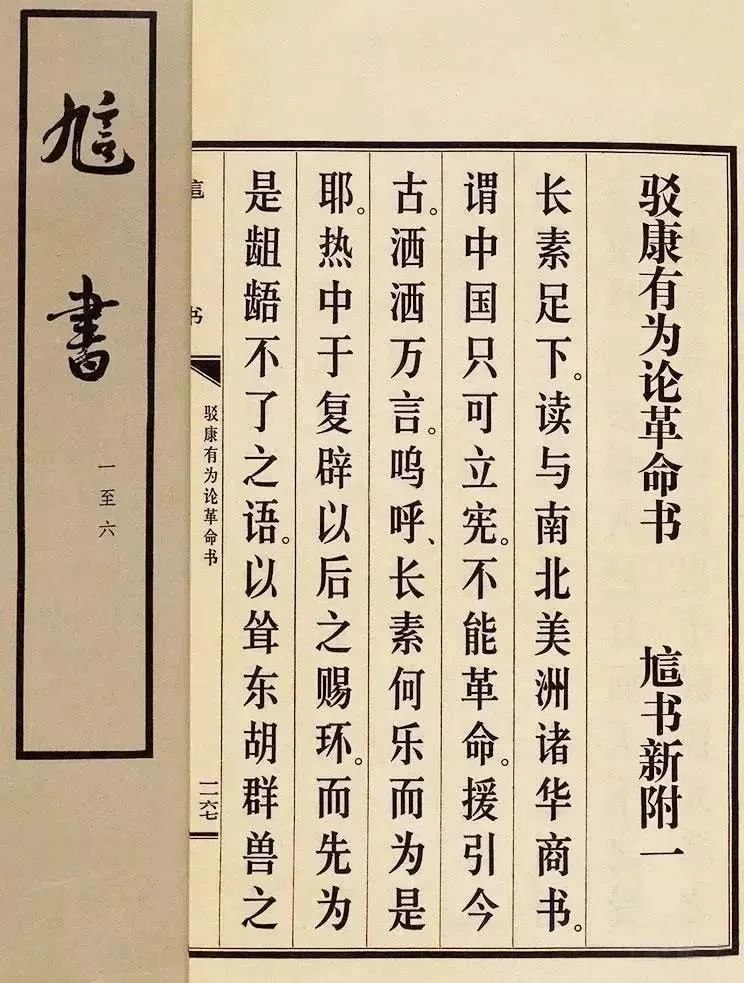 訄書
一至六
驳康有为论革命书 訄书新附一
长素足下。读与南北美洲诸华商书。
谓中国只可立宪。不能革命。援引今
古。洒洒万言。呜呼、长素何乐而为是
耶。热中于复辟以后之赐环。而先为
是龃龉不了之语。以耸东胡群兽之
驳康有为论革命书